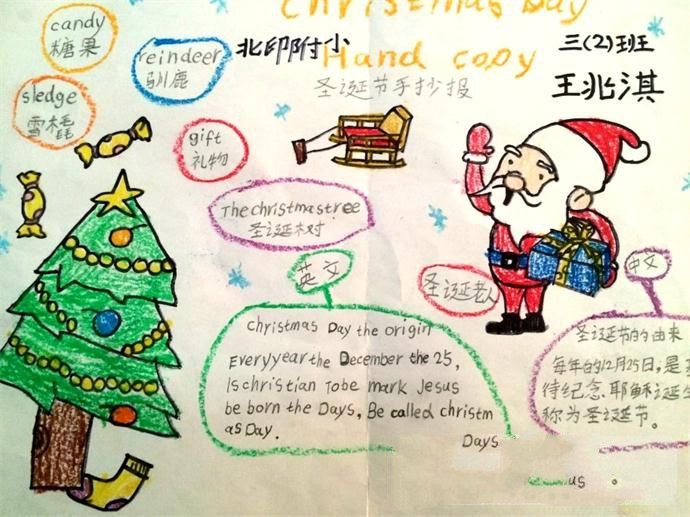 Christmas Day
Hand copy
圣诞节手抄报
北印附小
三(2)班
王兆淇
candy
糖果
reindeer
驯鹿
sledge
雪橇
gift
礼物
The christmas tree
圣诞树
英文
圣诞老人
中文
Christmas Day the origin
Every year the December the 25,
Is christian To be mark Jesus
be born the Days, Be called christm
as Day.
Days
us
圣诞节的由来
每年的12月25日,是
待纪念.耶稣诞生
称为圣诞节。